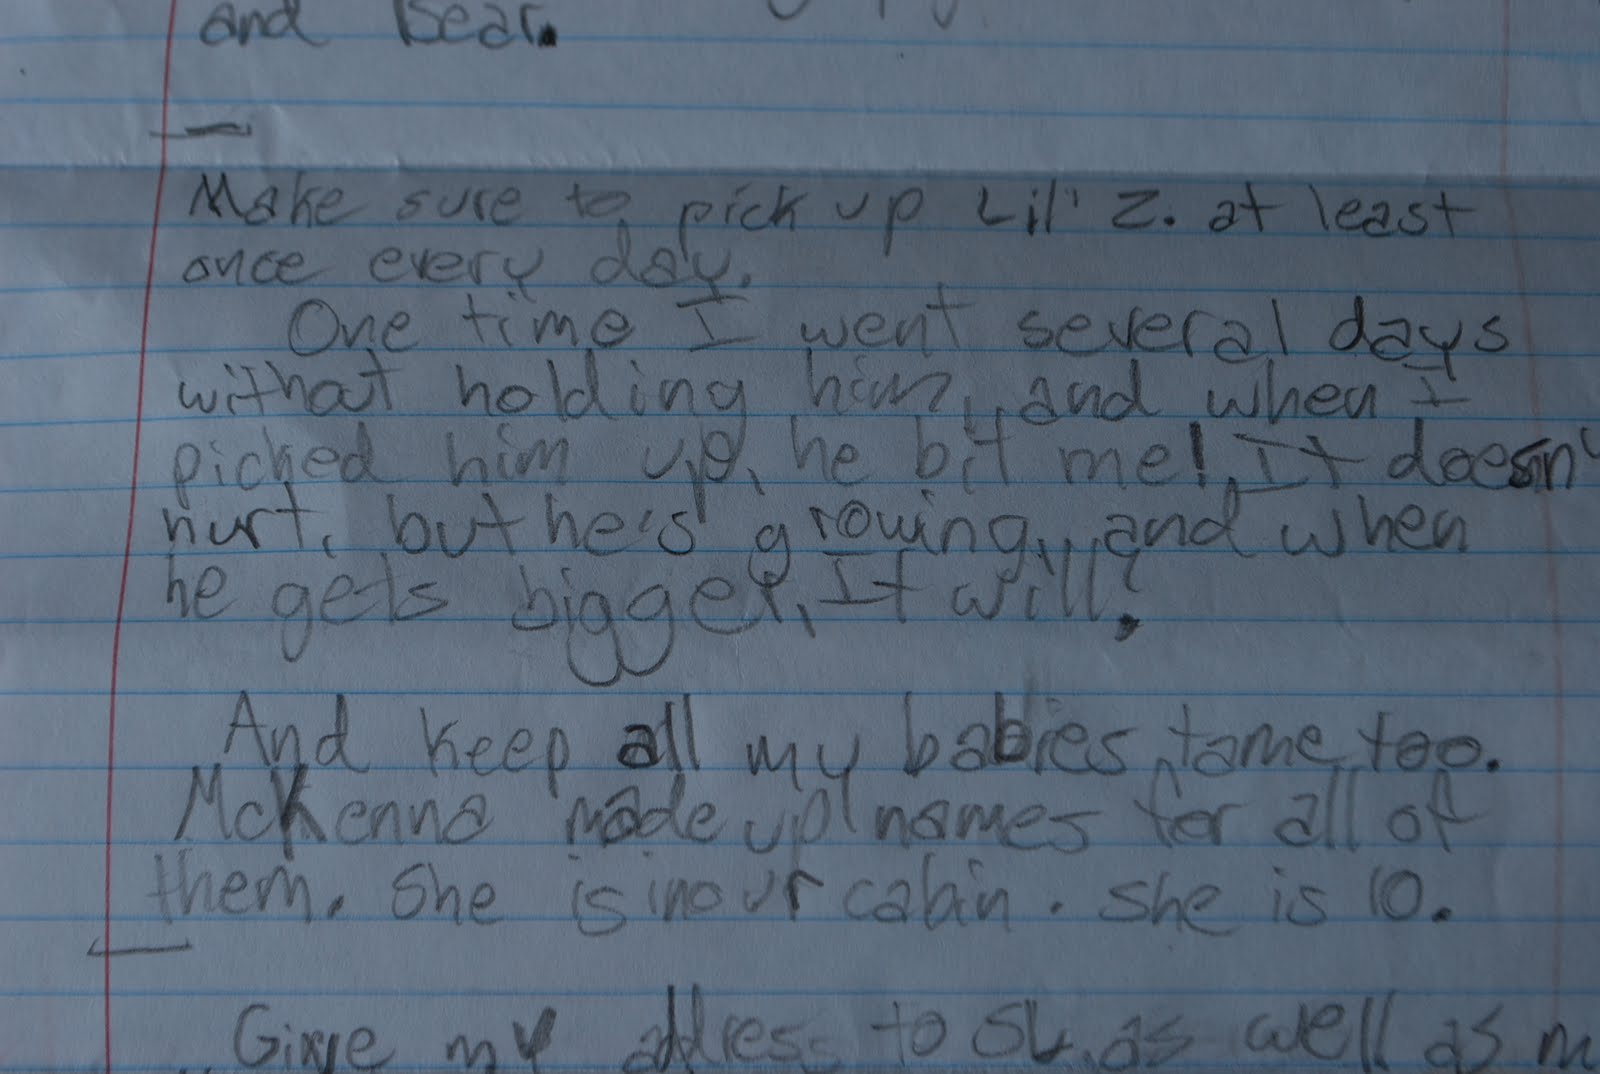 and Bear.
Make sure to pick up Lil' Z. at least
once every day.
One time I went several days
without holding him, and when I
picked him up, he bit me! It doesn'
hurt, but he's growing, and when
he gets bigger, It will!
And keep all my babies tame too.
McKenna made up names for all of
them. She is in our cabin. She is 10.
Give my address to as well as m